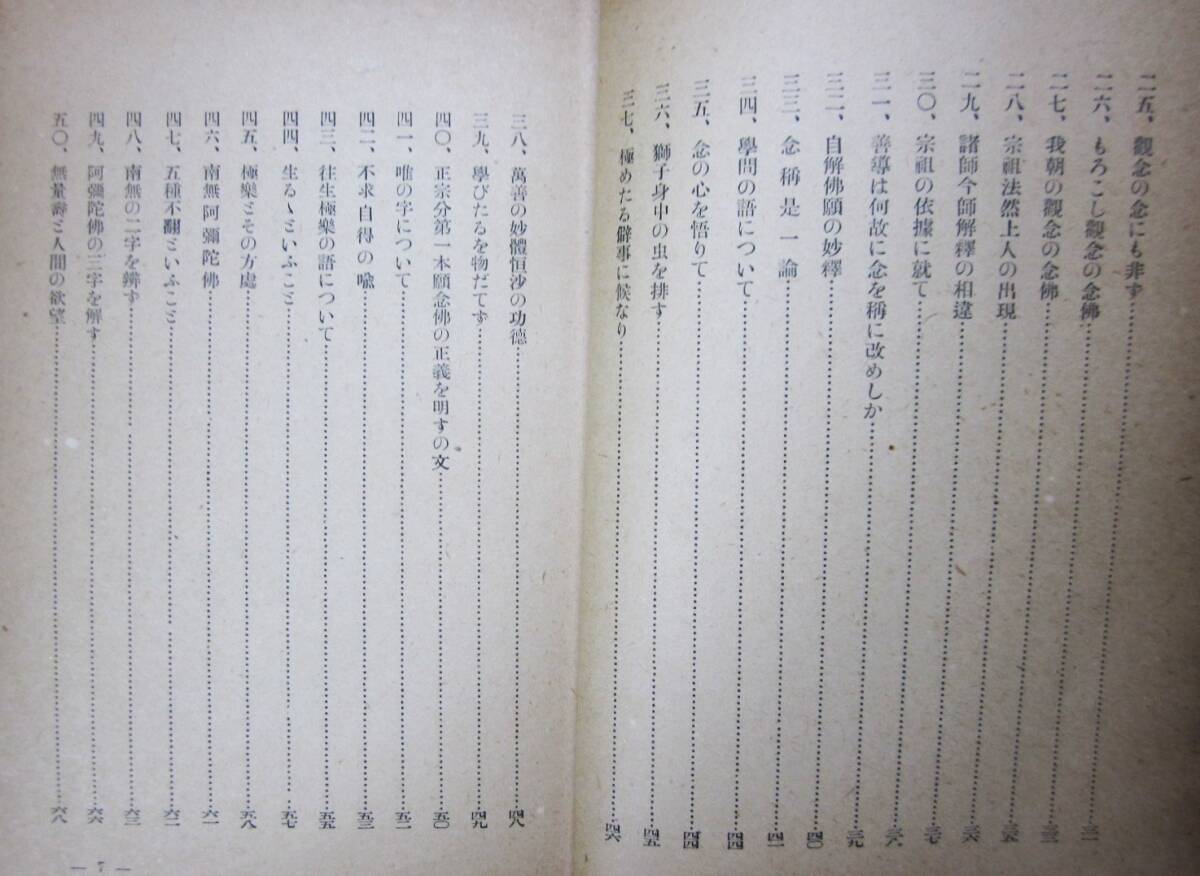 二五、觀念の念にも非ず……三一
二六、もろこし觀念の念佛……三二
二七、我朝の觀念の念佛……三三
二八、宗祖法然上人の出現……三五
二九、諸師今師解釋の相違……三六
三〇、宗祖の依據に就て……三七
三一、善導は何故に念を稱に改めしか……三九
三二、自解佛願の妙釋……四〇
三三、念稱是一論……四一
三四、學問の語について……四四
三五、念の心を悟りて……四四
三六、獅子身中の虫を排す……四五
三七、極めたる僻事に候なり……四六
三八、萬善の妙體恒沙の功德……四八
三九、學びたるを物だてず……四九
四〇、正宗分第一本願念佛の正義を明すの文……五〇
四一、唯の字について……五二
四二、不求自得の喩……五三
四三、往生極樂の語について……五五
四四、生るゝといふこと……五七
四五、極樂とその方處……五八
四六、南無阿彌陀佛……六一
四七、五種不翻といふこと……六二
四八、南無の二字を辨ず……六三
四九、阿彌陀佛の三字を解す……六六
五〇、無量壽と人間の欲望……六八
— 7 —